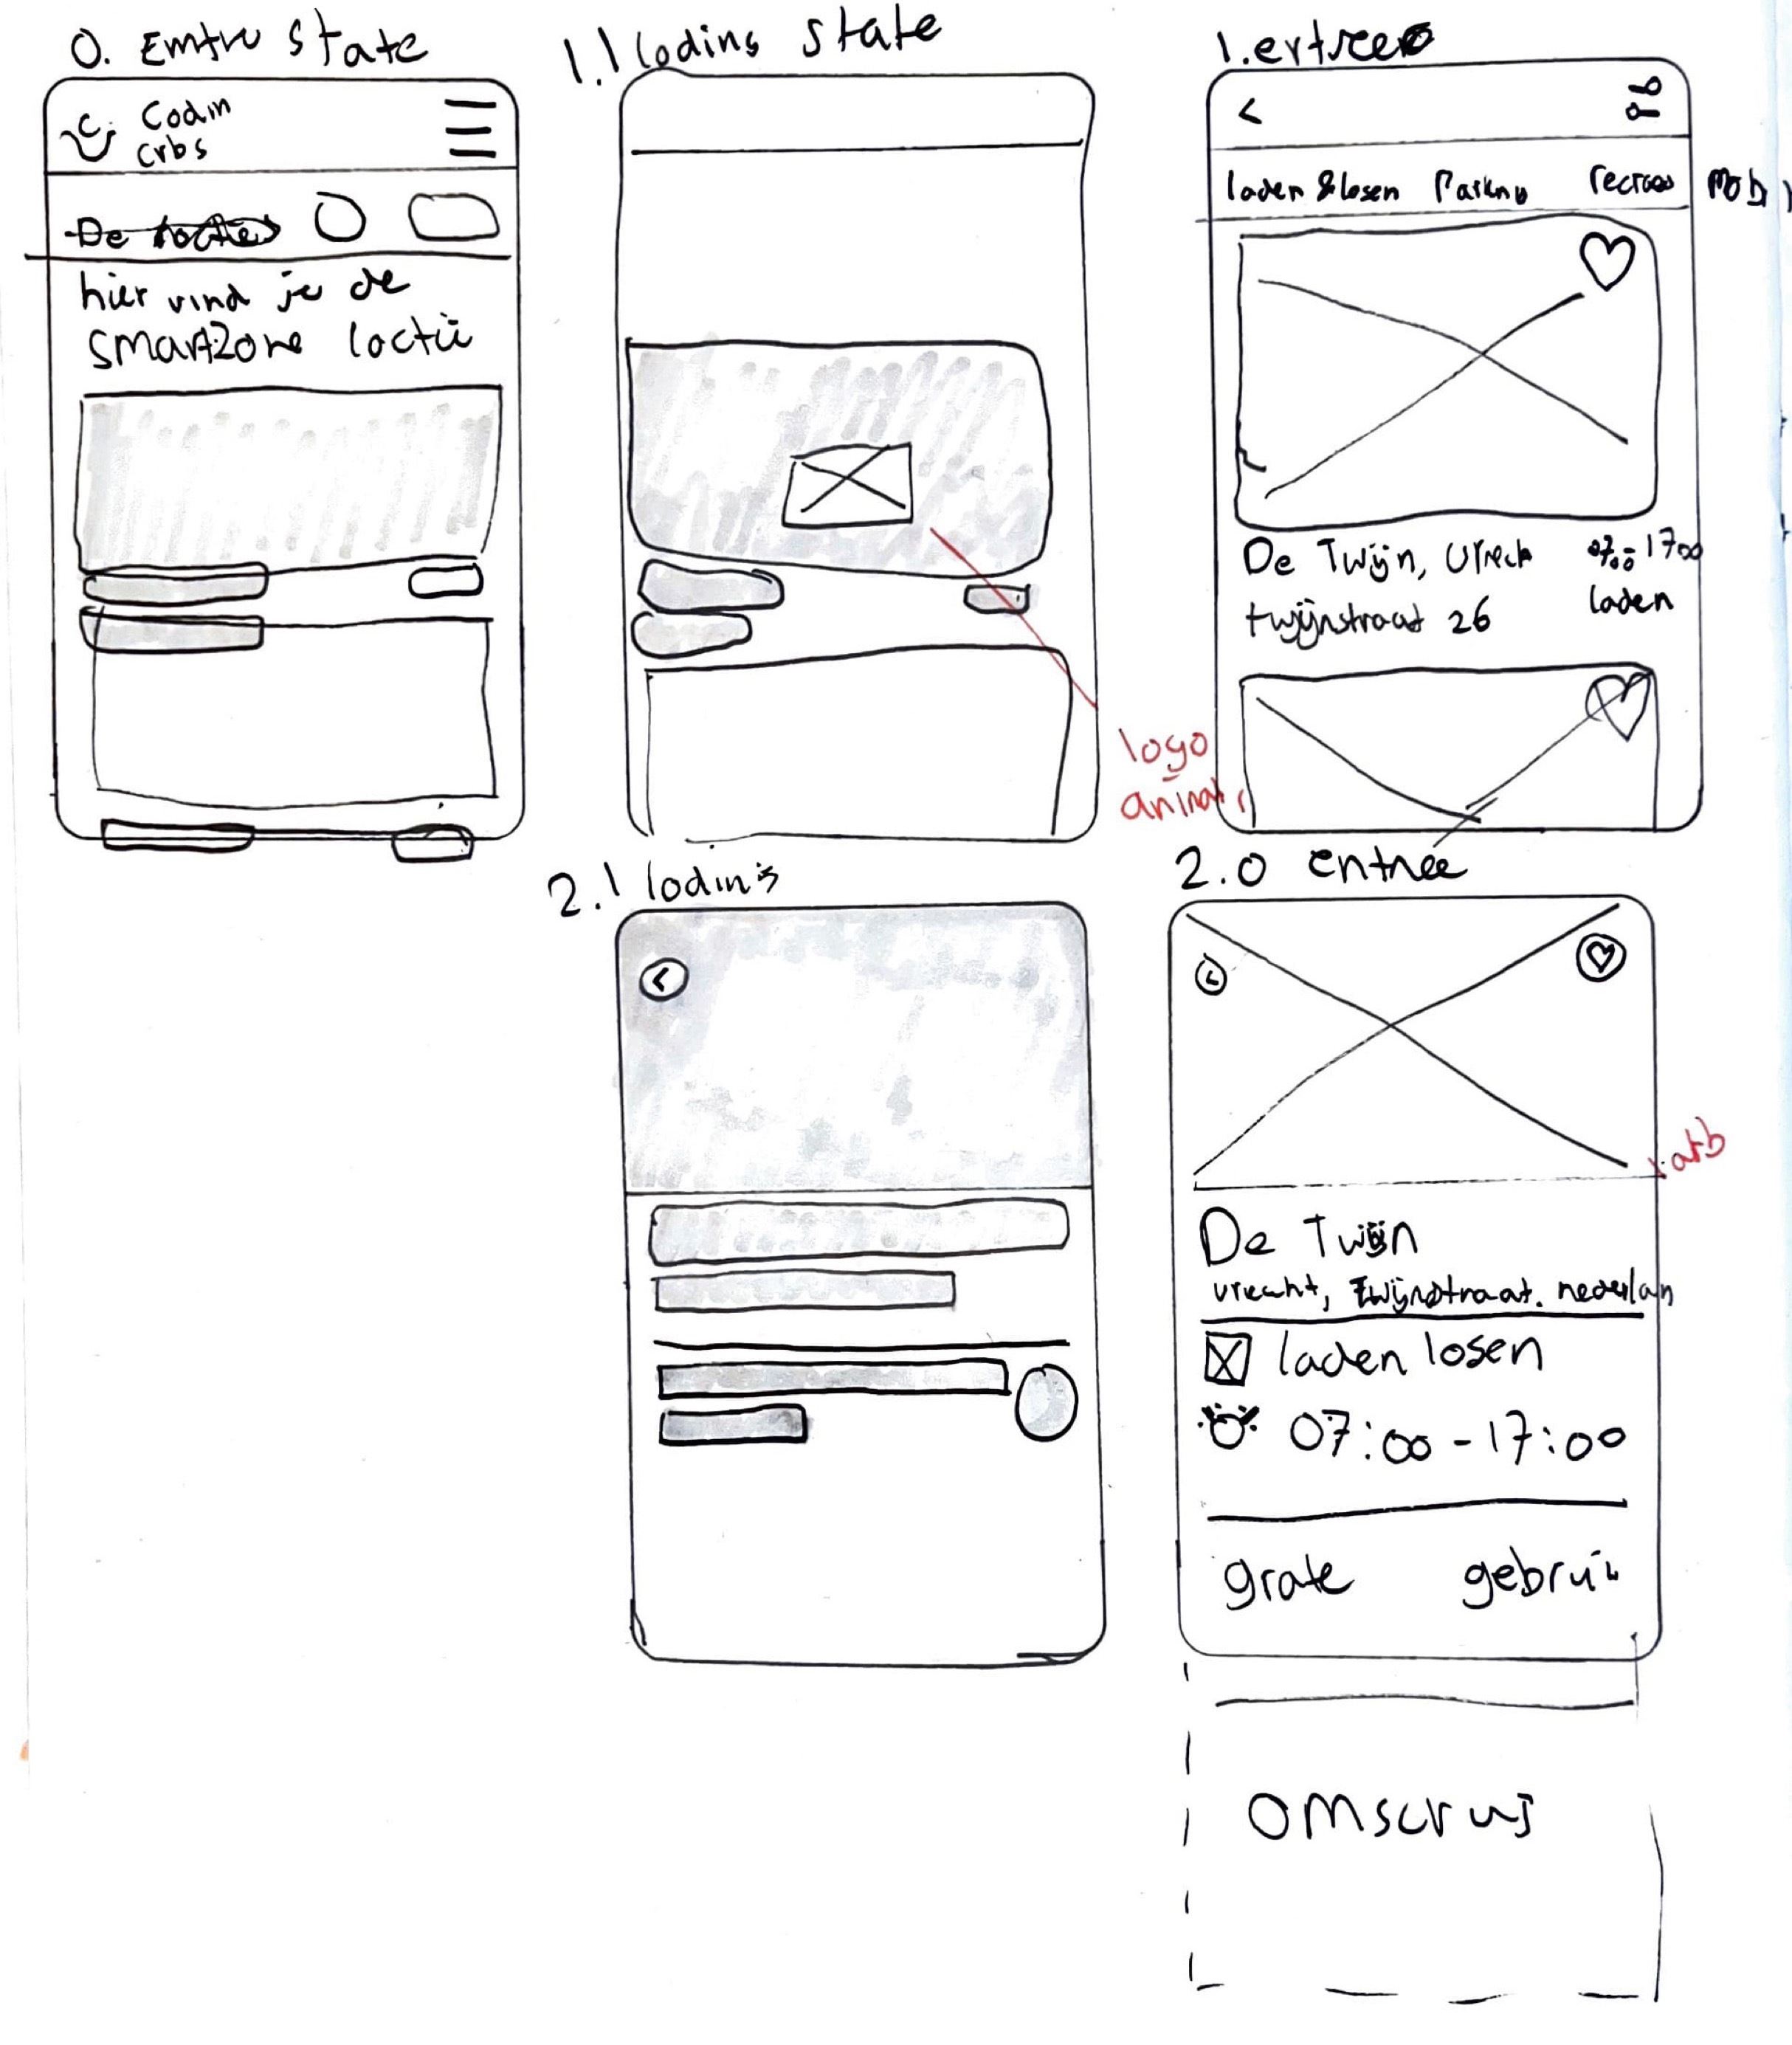 0. Emtru state
Codin
crbs
De
hier vind je de
smartzone loctië
1.1 lodins state
logo
animat
1.ertree
<
laden &losen Parkno recrees mob
De Twijn, Utrech 07:00-1700
twijnstraat 26 laden
2.1 lodins
<
2.0 entree
arb
De Twijn
utrecht, Twijnstraat. nederlan
laden losen
07:00-17:00
grate gebrui
omscruj